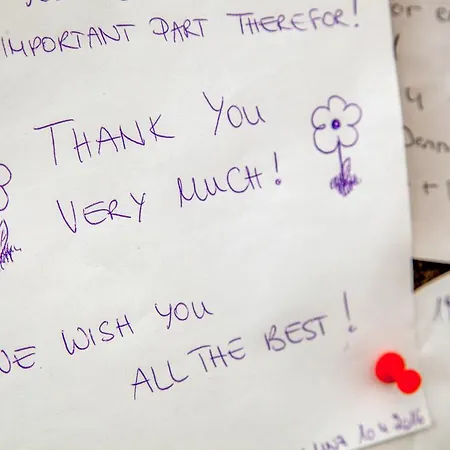 IMPORTANT PART THEREFOR!
THANK YOU
VERY MUCH!
WE WISH YOU
ALL THE BEST!
10.4.2016